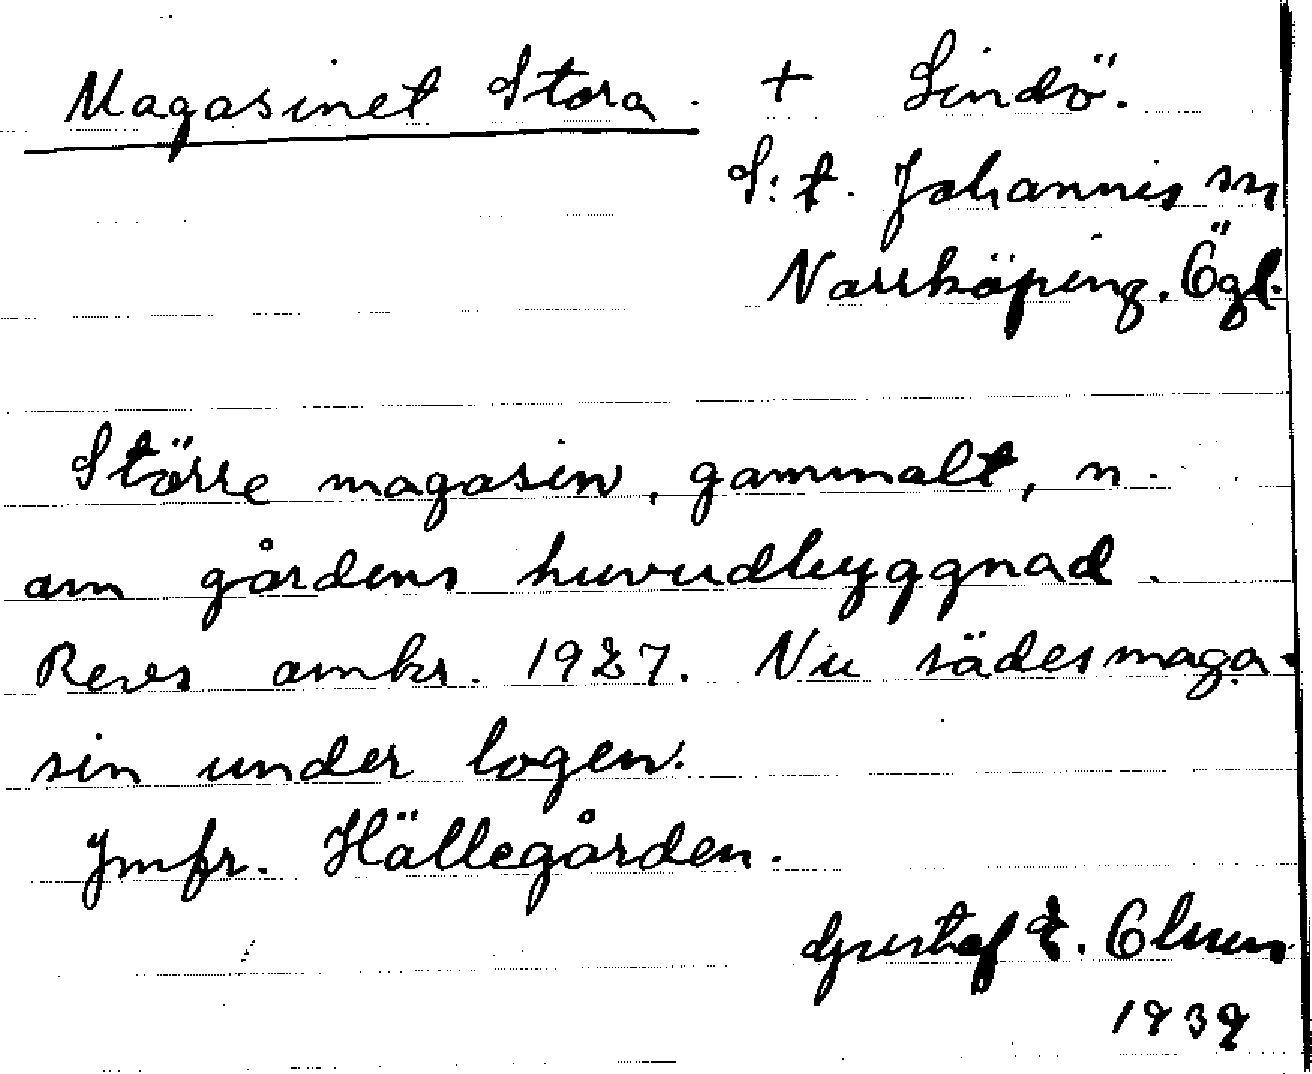 Magasinet Stora. + Lindö.
S:t. Johannis sn
Norrköping. Ögl.
Större magasin, gammalt, n.
om gårdens huvudbyggnad.
Revs omkr. 1927. Nu sädesmaga-
sin under logen.
Jmfr. Hällegården.
Gustaf E. Olsson
1939